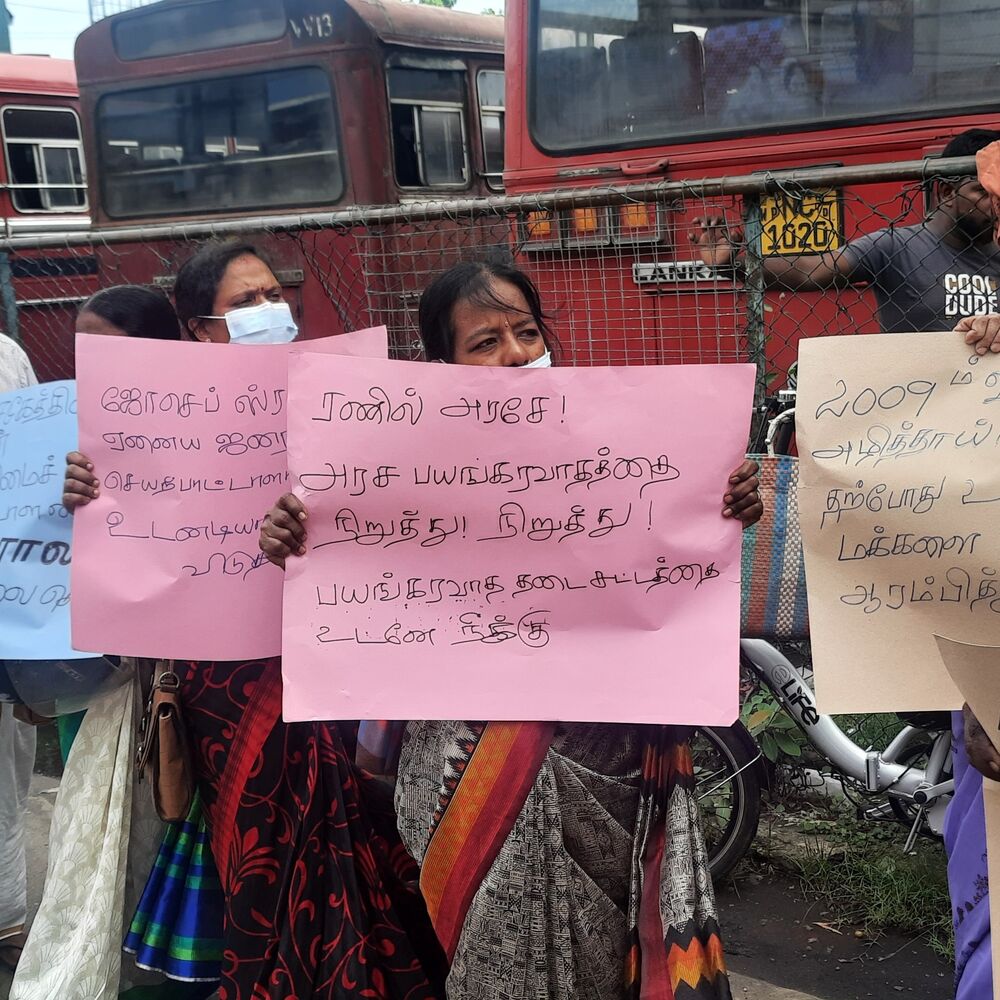 VV13
NC
1620
LANKA
COOL
DUDE
eLIFE
ஜோசெப் ஸ்ர
ஏனைய ஜனந
செயற்பாட்டாள
உடனடியா
விடுத
ரணில் அரசே!
அரச பயங்கரவாதத்தை
நிறுத்து! நிறுத்து!
பயங்கரவாத தடைசட்டத்தை
உடனே நீக்கு
2009 ம்
அழித்தாய்
தற்போது
மக்களை
ஆரம்பித்